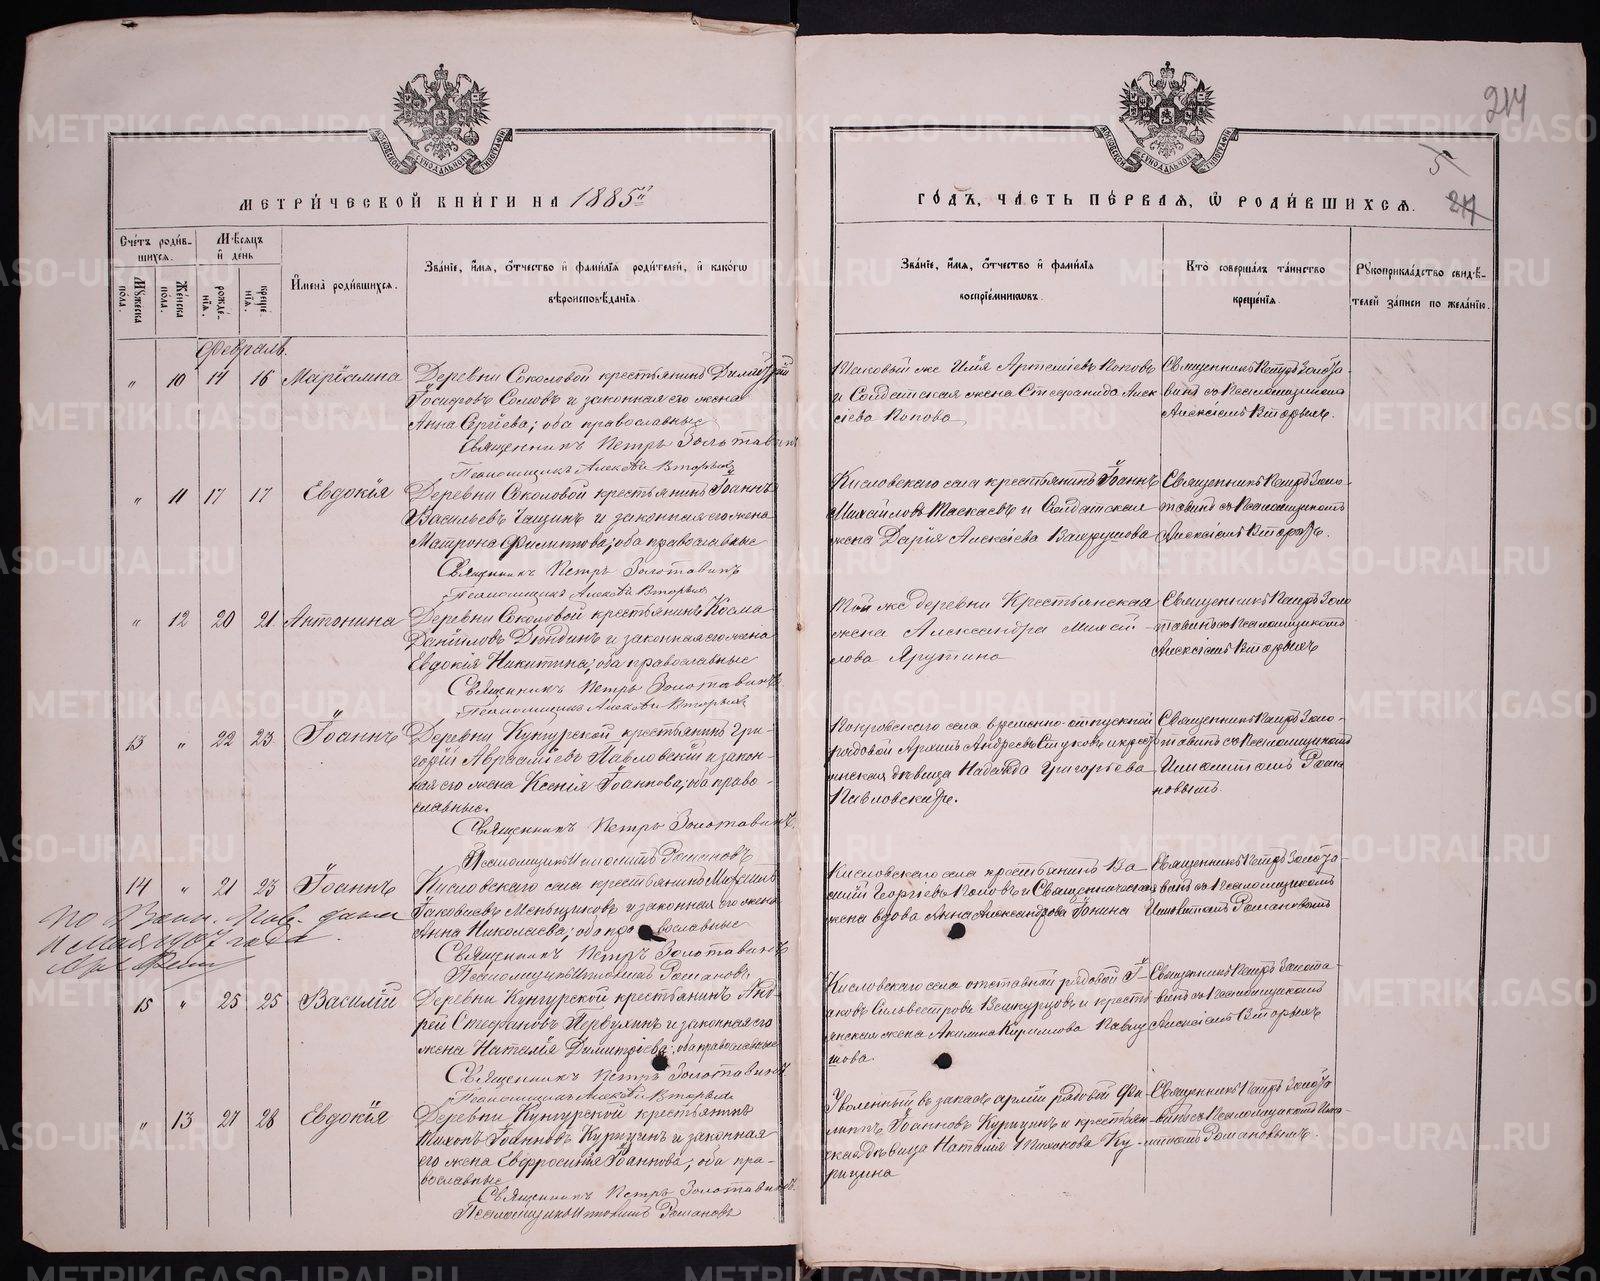 214
5
214
МОСКОВСКОЙ СѴНОДАЛЬНОЙ ТИПОГРАФІИ
МОСКОВСКОЙ СѴНОДАЛЬНОЙ ТИПОГРАФІИ
МЕТРИ́ЧЕСКОЙ КНИ́ГИ НА 1885й
ГО́ДЪ, ЧА́СТЬ ПЕ́РВАЯ, Ѡ РОДИ́ВШИХСЯ.
Сче́тъ роди́в-
шихся.
Му́жеска
пола.
Же́нска
пола.
Мѣ́сяцъ
и҆ де́нь
рожде́-
нїѧ.
креще́-
нїѧ.
И҆мена̀ роди́вшихся.
Зва́нїе, и҆́мѧ, ѻ҆́тчество и҆ фами́лїѧ роди́телей, и҆ како́гѡ
вѣроисповѣ́данїѧ.
Зва́нїе, и҆́мѧ, ѻ҆́тчество и҆ фами́лїѧ
воспрїе́мникѡвъ.
Кто̀ соверша́лъ та́инство
креще́нїѧ.
Рꙋкоприкла́дство свидѣ́-
телей за́писи по жела́нїю.
Февраль.
" 10 14 16 Марїамна
Деревни Соколовой крестьянинъ Димитрїй
Їосифовъ Сомовъ и законная его жена
Анна Сергїева; оба православные
Священникъ Петръ Золотавинъ
Псаломщикъ Алексѣй Вторыхъ
Таковый же Илїя Артемїевъ Поповъ
и Солдатская жена Стефанида Алек
сїева Попова
Священникъ Петръ Золота-
винъ съ Псаломщикомъ
Алексїемъ Вторыхъ.
" 11 17 17 Евдокїя
Деревни Соколовой крестьянинъ Їоаннъ
Васильевъ Чащинъ и законная его жена
Матрона Филиппова; оба православные
Священникъ Петръ Золотавинъ
Псаломщикъ Алексѣй Вторыхъ
Кисловскаго села крестьянинъ Їоаннъ
Михайловъ Таскаевъ и Солдатская
жена Дарїя Алексїева Вахрушова
Священникъ Петръ Золо-
тавинъ съ Псаломщикомъ
Алексїемъ Вторыхъ.
" 12 20 21 Антонина
Деревни Соколовой крестьянинъ Косма
Данїиловъ Дюндинъ и законная его жена
Евдокїя Никитина; оба православные
Священникъ Петръ Золотавинъ
Псаломщикъ Алексѣй Вторыхъ
Той же деревни Крестьянская
жена Александра Михай
лова Ярутина
Священникъ Петръ Золо
тавинъ съ Псаломщикомъ
Алексїемъ Вторыхъ
13 " 22 23 Їоаннъ
Деревни Кунгурской крестьянинъ Гри-
горїй Авраамїевъ Павловскїй и закон-
ная его жена Ксенїя Їоаннова; оба право-
славные.
Священникъ Петръ Золотавинъ.
Псаломщикъ Ипполитъ Романовъ
Покровскаго села временно-отпускной
рядовой Архипъ Андреевъ и крестья
инская дѣвица Надежда Григорьева
Павловскихъ.
Священникъ Петръ Золо-
тавинъ съ Псаломщикомъ
Ипполитомъ Рома
новымъ
14 " 21 23 Їоаннъ
Кисловскаго села крестьянинъ Максимъ
Їаковлевъ Меньщиковъ и законная его жена
Анна Николаева; оба православные
Священникъ Петръ Золотавинъ
Псаломщикъ Ипполитъ Романовъ
Кисловскаго села крестьянинъ Ва
силїй Георгїевъ Поповъ и Священническая
жена вдова Анна Александрова Їонина
Священникъ Петръ Золота-
винъ съ Псаломщикомъ
Ипполитомъ Романовымъ
11 Мая 1907 года
15 " 25 25 Василїй
Деревни Кунгурской крестьянинъ Анд-
рей Стефановъ Первухинъ и законная его
жена Наталїя Димитрїева; оба православные
Священникъ Петръ Золотавинъ
Псаломщикъ Алексѣй Вторыхъ
Кисловскаго села отставной рядовой Ї-
аковъ Сильвестровъ Ветлугуровъ и кресть
янская жена Акилина Кириллова Павлу
шова.
Священникъ Петръ Золота-
винъ съ Псаломщикомъ
Алексїемъ Вторыхъ
" 13 27 28 Евдокїя
Деревни Кунгурской крестьянинъ
Тихонъ Їоанновъ Курицинъ и законная
его жена Евфросинїя Їоаннова; оба пра-
вославные
Священникъ Петръ Золотавинъ.
Псаломщикъ Ипполитъ Романовъ
Уволенный въ запасъ армїи рядовой Фи
липпъ Їоанновъ Курицинъ и крестьян-
ская дѣвица Наталїя Тихонова Ку-
рицина
Священникъ Петръ Золота
винъ съ Псаломщикомъ Иппо-
литомъ Романовымъ.
METRIKI.GASO-URAL.RU